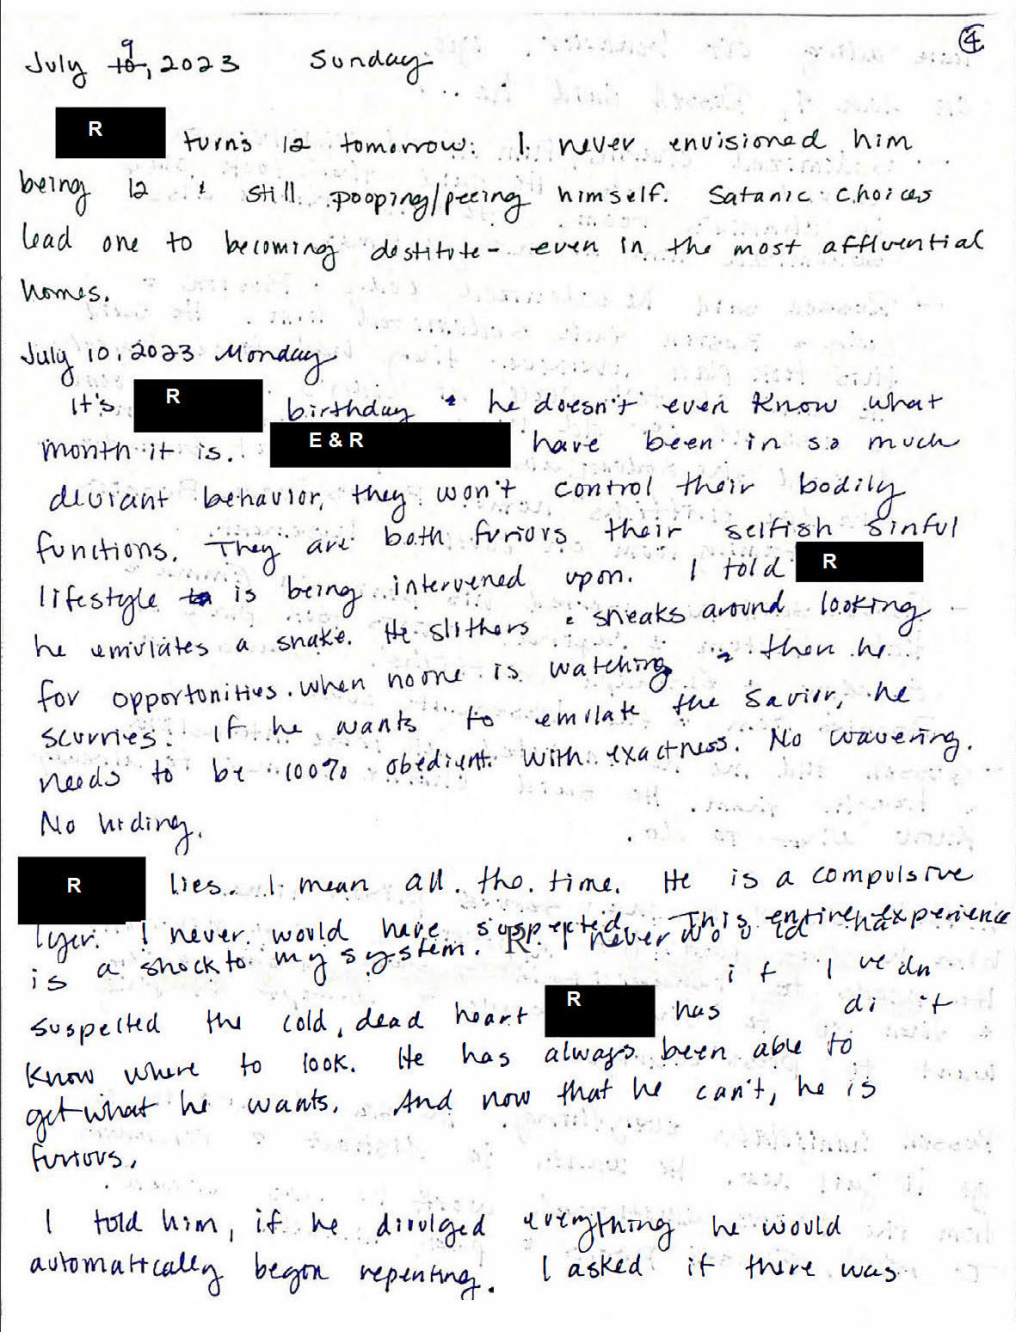 ④
July 9 10, 2023 Sunday
R turns 12 tomorrow. I never envisioned him
being 12 & still pooping/peeing himself. Satanic choices
lead one to becoming destitute - even in the most affluential
homes.
July 10, 2023 Monday
It's R birthday & he doesn't even know what
month it is. E & R have been in so much
deviant behavior, they won't control their bodily
functions. They are both furious their selfish sinful
lifestyle is being intervened upon. I told R
he emulates a snake. He slithers & sneaks around looking
for opportunities when no one is watching & then he
scurries. If he wants to emulate the Savior, he
needs to be 100% obedient with exactness. No wavering.
No hiding.
R lies. I mean all the time. He is a compulsive
lyer. I never would have suspected. This entire experience
is a shock to my system. R I never would ha
if I
suspected the cold, dead heart R has
know where to look. He has always been able to
get what he wants. And now that he can't, he is
furious.
I told him, if he divulged everything he would
automatically begon repenting. I asked if there was